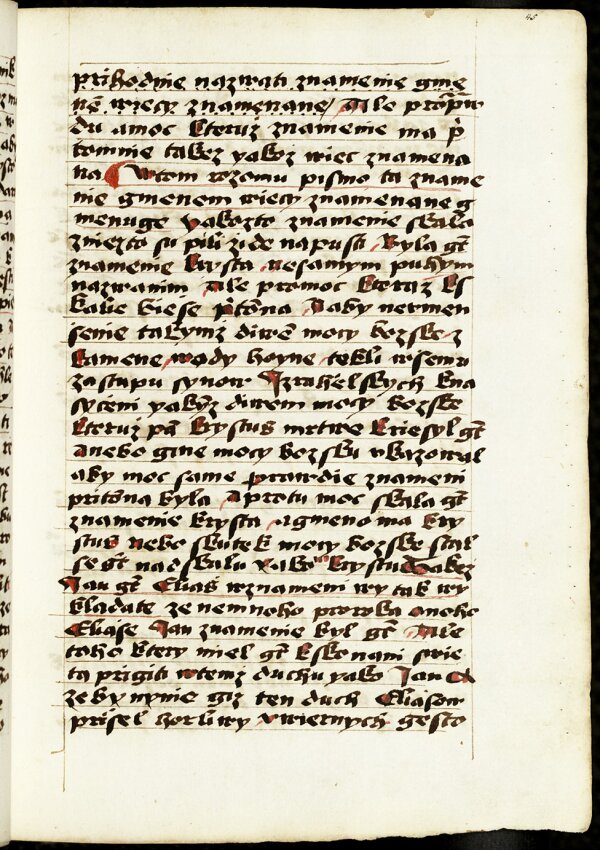 45
prihodnie nazwati znamenie gme
nē wiecy znamenane / Ale pro
du a moc kteruz znamenie ma p̄
tomnie takez yakoz wiec znamena
na W tom rozomu pismo ta zname
nie gmenem wiecy znamenane g
menuge yakozto znamenie skala
zniezto su pili zide na pusti Byla gt
znamenie krysta ne samym puhym
nazwanim Ale pro moc kteraz
kalie biese p̄tōna Aby
senie takymz diwē mocy bozske z
kamene wody hoyne tekli wsemu
zastupu synow Izrahelskych
syceni yakyz diwem mocy bozske
kteruz pā krystus mrtwe kriesyl gt
anebo gine mocy bozsku vkazowal
aby moc same prawdie znameni
pritōna byla A protu moc skala gt
znamenie krysta a gmeno ma kry
stus nebo skutek mocy bozske stal
se gt nad skalu yako krystus Takez
Jan gt Elias w znameni wy tak wy
kladate ze nemnoho proroka onoho
Eliase Jan znamenie byl gt Ale
toho ktery miel gt k skonani swie
ta prigiti w temz duchu yako Jan
ze by nynie giz ten duch Eliasow
prisel horliwy v wiernych gesto